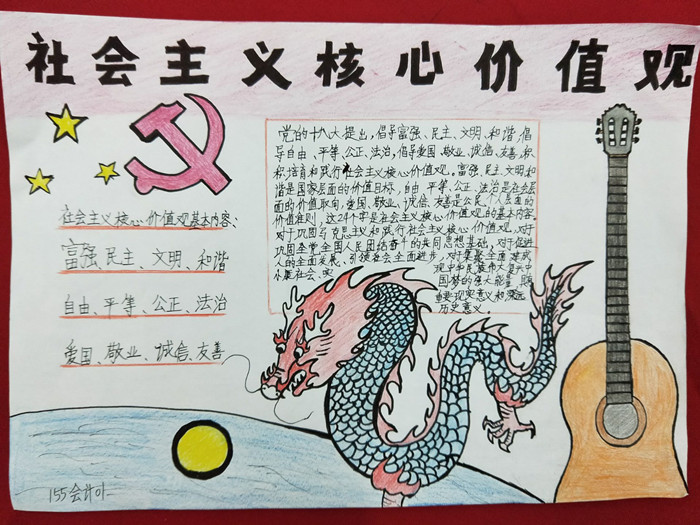 社会主义核心价值观
社会主义核心价值观基本内容:
富强、民主、文明、和谐
自由、平等、公正、法治
爱国、敬业、诚信、友善
党的十八大提出,倡导富强、民主、文明、和谐,倡
导自由、平等、公正、法治,倡导爱国、敬业、诚信、友善,积
积培育和践行社会主义核心价值观。富强、民主、文明和
谐是国家层面的价值目标,自由、平等、公正、法治是社会层
面的价值取向,爱国、敬业、诚信、友善是公民个人层面的
价值准则,这24个字是社会主义核心价值观的基本内容。
对于巩固马克思主义和践行社会主义核心价值观,对于
巩固全党全国人民团结奋斗的共同思想基础,对于促进
人的全面发展、引领社会全面进步,对于集聚全面建成
小康社会、实
国梦的强大能量,具
重要现实意义和深远
历史意义。
155会计01